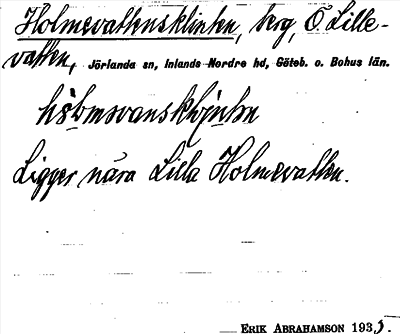 Holmevattensklinten, berg, Ö. Lille-
vatten, Jörlanda sn, Inlands Nordre hd, Göteb. o. Bohus län.
Ligger nära Lilla Holmevatten.
ERIK ABRAHAMSON 1933.